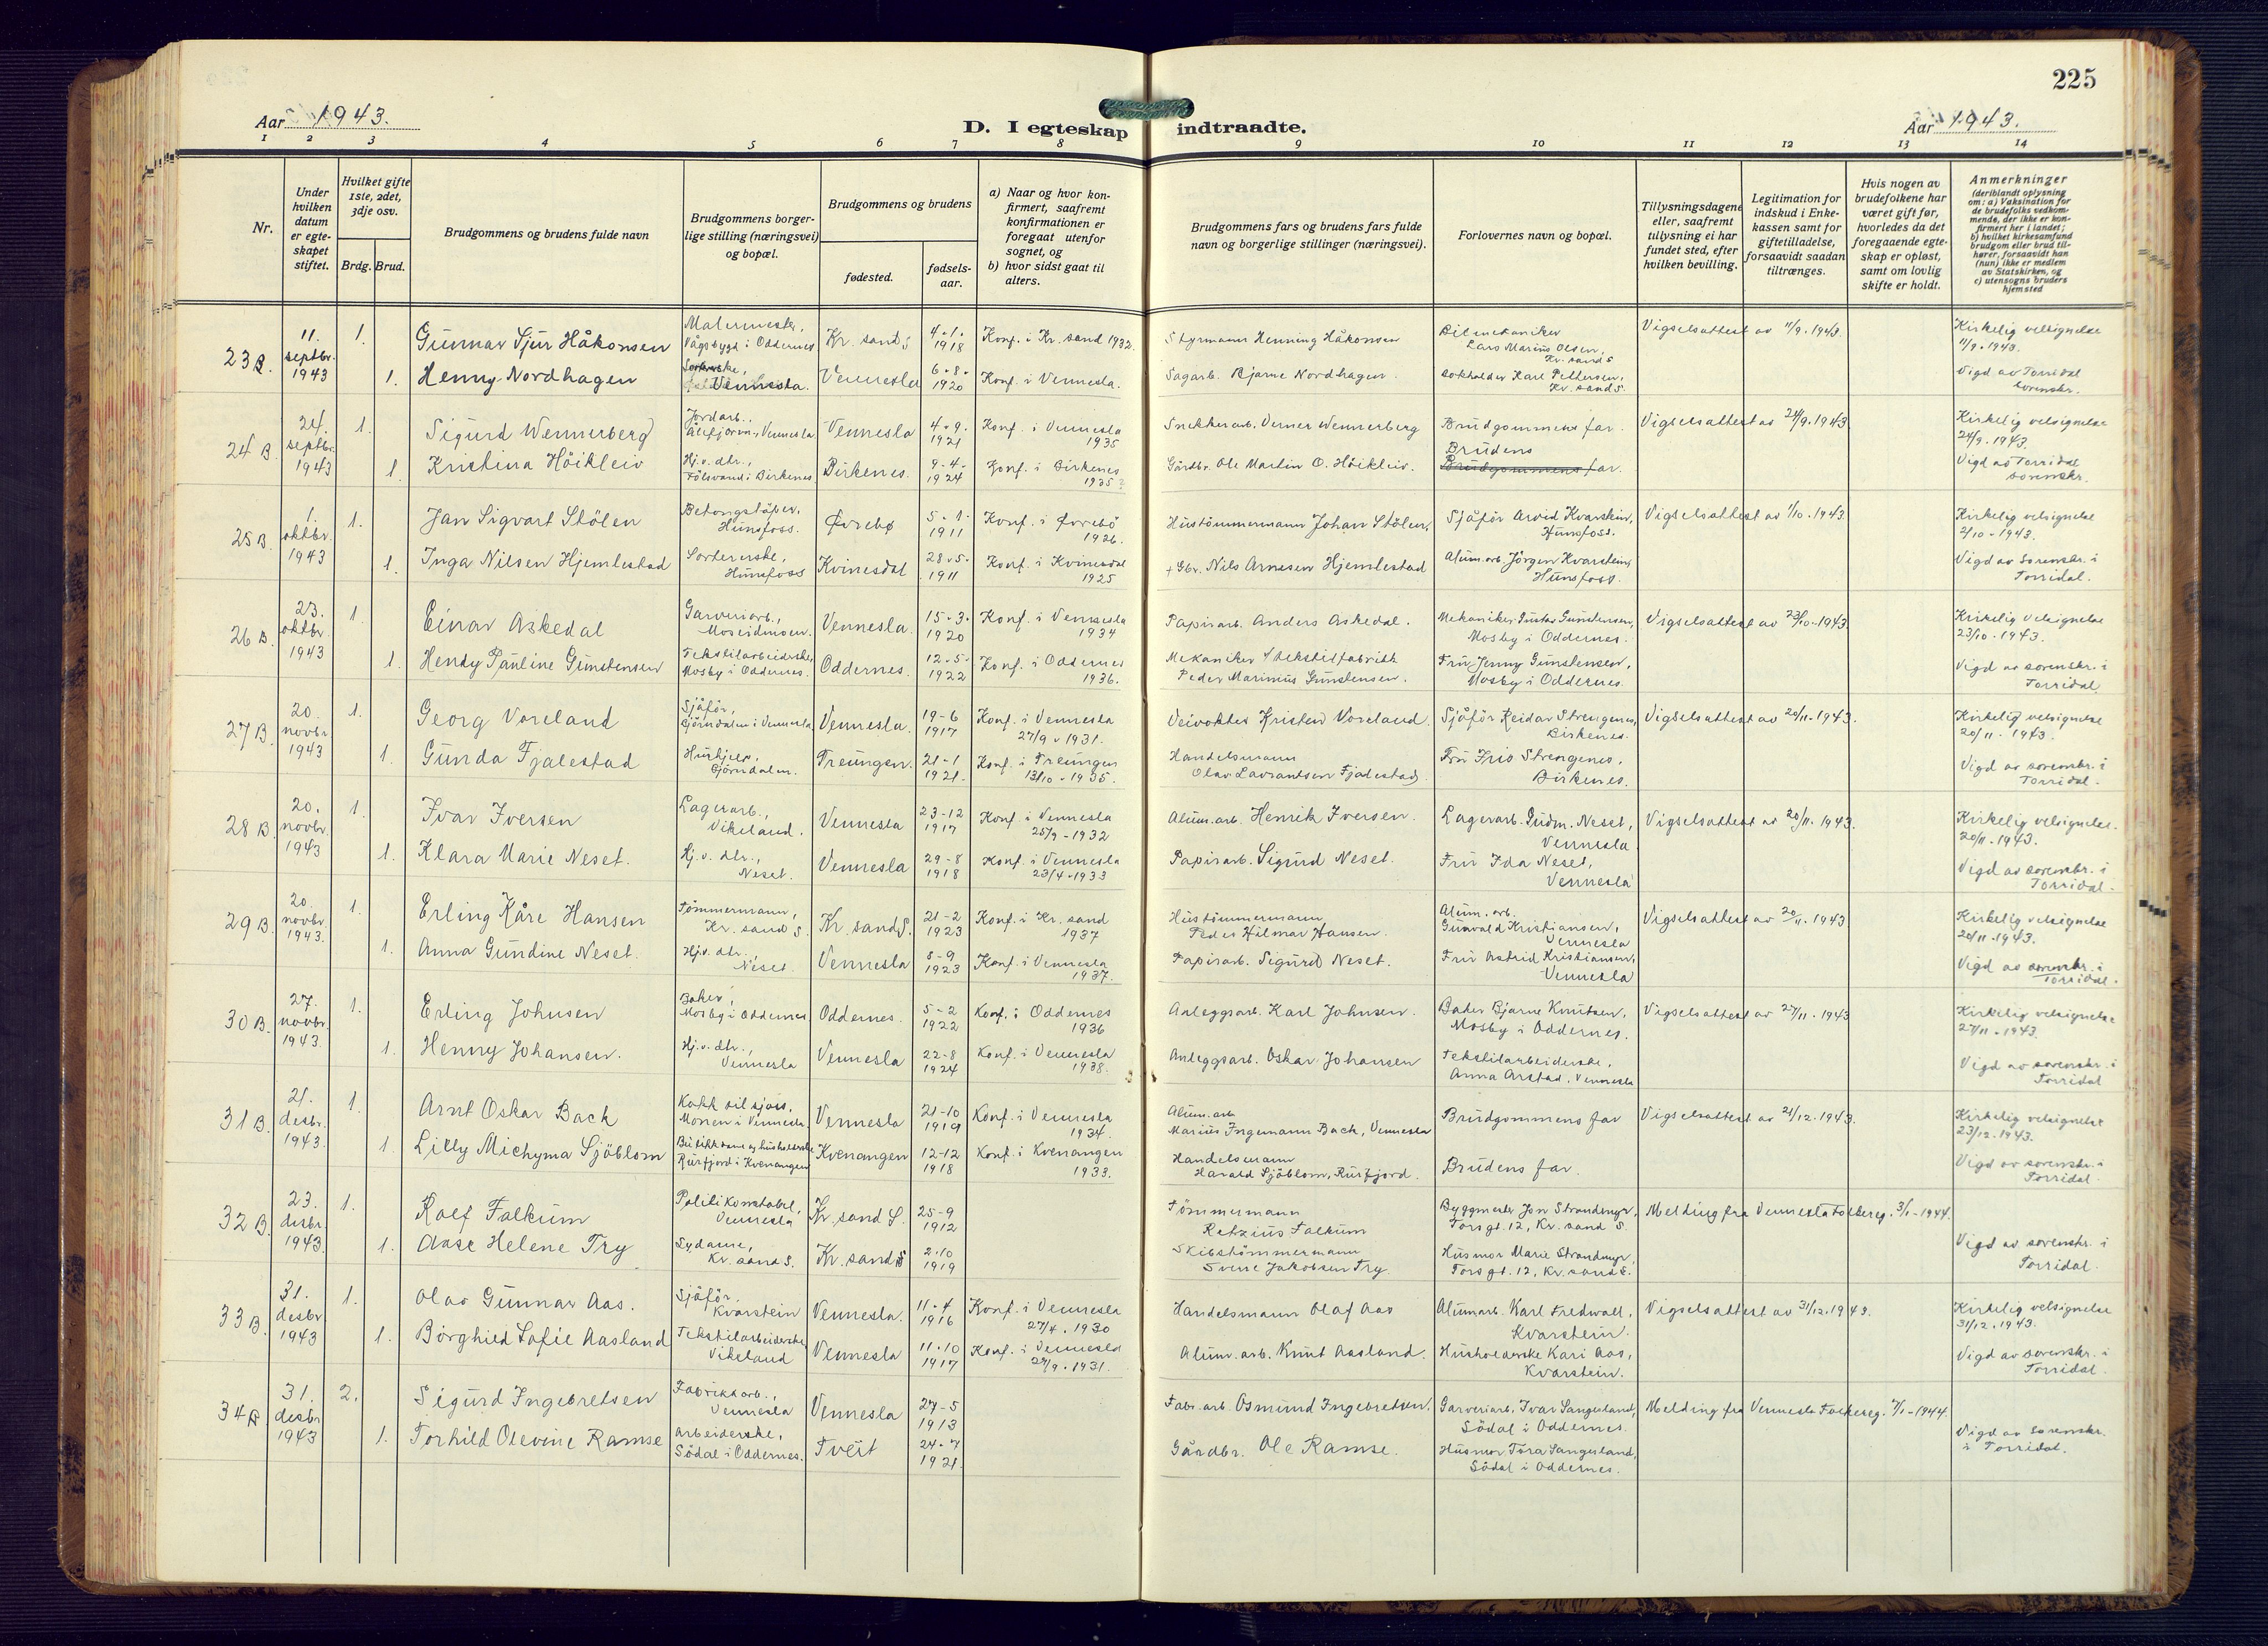 225
Aar 1943.
D. I egteskap indtraadte.
Aar 1943.
1 2 3 4 5 6 7 8 9 10 11 12 13 14
Nr.
Under hvilken datum er egteskapet stiftet.
Hvilket gifte 1ste, 2det, 3dje osv.
Brdg. Brud.
Brudgommens og brudens fulde navn
Brudgommens borgerlige stilling (næringsvei) og bopæl.
Brudgommens og brudens
fødested.
fødselsaar.
a) Naar og hvor konfirmert, saafremt konfirmationen er foregaat utenfor sognet, og
b) hvor sidst gaat til alters.
Brudgommens fars og brudens fars fulde navn og borgerlige stillinger (næringsvei).
Forlovernes navn og bopæl.
Tillysningsdagene eller, saafremt tillysning ei har fundet sted, efter hvilken bevilling.
Legitimation for indskud i Enkekassen samt for giftetilladelse, forsaavidt saadan tiltrænges.
Hvis nogen av brudefolkene har været gift før, hvorledes da det foregaaende egteskap er opløst, samt om lovlig skifte er holdt.
Anmerkninger
(deriblandt oplysning om: a) Vaksination for de brudefolks vedkommende, der ikke er konfirmert her i landet; b) hvilket kirkesamfund brudgom eller brud tilhører, forsaavidt han (hun) ikke er medlem av Statskirken, og c) utensogns bruders hjemsted
23 B. 11. septbr. 1943 1. Gunnar Sjur Håkonsen Malermester, Vågsbygd i Oddernes Kr. sand S 4-1-1918 Konf. i Kr. sand 1932. Styrmann Henning Håkonsen Bilmekaniker Lars Marius Olsen, Kr. sand S Vigselsattest av 11/9-1943. Kirkelig velsignelse 11/9-1943.
1. Henny Nordhagen Vennesla. Vennesla 6-8-1920 Konf. i Vennesla. Sagarb. Bjarne Nordhagen. Karl Pettersen, Kr. sand S. Vigd av Torridal sorenskr.
24 B. 24. septbr. 1943 1. Sigurd Wennerberg Jordarb., Vennesla Vennesla 4-9-1921 Konf. i Vennesla 1935 Snekkerarb. Verner Wennerberg Brudgommens far. Vigselsattest av 24/9-1943 Kirkelig velsignelse 24/9-1943.
1. Kristina Höikleiv Hj.v. dtr., Fölsvand i Birkenes Birkenes. 9-4-1924 Konf. i Birkenes 1935? Gårdbr. Ole Martin O. Höikleiv. Brudens Brudgommens far. Vigd av Torridal sorenskr.
25 B. 1. oktbr. 1943 1. Jan Sigvart Stölen Betongstöper, Hunsfoss. Øvrebø 5-1-1911 Konf. i Øvrebö 1926. Hustömmermann Johan Stölen, Sjåför Arvid Kvarstein, Hunsfoss. Vigselsattest av 1/10-1943. Kirkelig velsignelse 2/10-1943.
1. Inga Nilsen Hjemlestad Sortererske, Hunsfoss Kvinesdal 28-5-1911 Konf. i Kvinesdal 1925 + Gbr. Nils Arnesen Hjemlestad Alum.arb. Jörgen Kvarstein, Hunsfoss. Vigd av Sorenskr. i Torridal.
26 B. 23. oktbr. 1943 1. Einar Askedal Garveriarb., Moseidmoen. Vennesla. 15-3-1920 Konf. i Vennesla 1934 Papirarb. Anders Askedal. Mekaniker Gustav Gunstensen, Mosby i Oddernes. Vigselsattest av 23/10-1943. Kirkelig velsignelse 23/10-1943.
1. Hendy Pauline Gunstensen Tekstilarbeiderske, Mosby i Oddernes. Oddernes. 12-5-1922 Konf. i Oddernes 1936. Mekaniker v/ tekstilfabrikk Peder Marinius Gunstensen. Fru Jenny Gunstensen, Mosby i Oddernes. Vigd av sorenskr. i Torridal.
27 B. 20. novbr 1943 1. Georg Voreland Sjåför, Gjörndalen i Vennesla Vennesla. 19-6 1917 Konf. i Vennesla 27/9-1931. Veivokter Kristen Voreland. Sjåför Reidar Strengenes, Birkenes. Vigselsattest av 20/11-1943. Kirkelig velsignelse 20/11-1943.
1. Gunda Fjalestad Hushjelp, Gjörndalen. Treungen. 21-1 1921. Konf. i Treungen 13/10-1935. Handelsmann Olav Lavrantsen Fjalestad Fru Iris Strengenes, Birkenes. Vigd av sorenskr. i Torridal.
28 B. 20. novbr. 1943 1. Ivar Iversen Lagerarb., Vikeland. Vennesla 23-12 1917 Konf. i Vennesla 25/9-1932 Alum.arb. Henrik Iversen. Lagerarb. Gudm. Neset, Vennesla. Vigselsattest av 20/11-1943. Kirkelig velsignelse. 20/11-1943.
1. Klara Marie Neset. Hj.v. dtr., Neset. Vennesla 29-8 1918 Konf. i Vennesla 23/4-1933 Papirarb. Sigurd Neset. Fru Ida Neset, Vennesla Vigd av sorenskr. i Torridal.
29 B. 20. novbr. 1943. 1. Erling Kåre Hansen Tömmermann, Kr. sand S. Kr. sand S. 21-2 1923 Konf. i Kr. sand 1937 Hustömmermann Peder Hilmar Hansen. Alum. arb. Gunvald Kristiansen, Vennesla Vigselsattest av 20/11-1943 Kirkelig velsignelse 20/11-1943.
1. Anna Gundine Neset. Hj.v. dtr., Neset. Vennesla 8-9 1923 Konf. i Vennesla 1937. Papirarb. Sigurd Neset. Fru Astrid Kristiansen, Vennesla Vigd av sorenskr. i Torridal.
30 B. 27. novbr. 1943. 1. Erling Johnsen Baker, Mosby i Oddernes Oddernes. 5-2 1922 Konf. i Oddernes 1936 Anleggsarb. Karl Johnsen. Baker Bjarne Knutsen, Mosby i Oddernes. Vigselsattest av 27/11-1943 Kirkelig velsignelse 27/11-1943.
1. Henny Johansen. Hj.v. dtr., Vennesla Vennesla 22-8 1924 Konf. i Vennesla 1938. Anleggsarb. Oskar Johansen Tekstilarbeiderske, Anna Arstad, Vennesla Vigd av sorenskr. i Torridal
31 B. 21. desbr. 1943. 1. Arnt Oskar Back Kokk til sjøs, Moseen i Vennesla. Vennesla 21-10 1919 Konf. i Vennesla 1934. Alum.arb Marius Ingemann Back, Vennesla Brudgommens far Vigselsattest av 21/12-1943. Kirkelig velsignelse 23/12-1943.
1. Lilly Michyma Sjöblom Rursfjord i Kvenangen Kvenangen 12-12 1918 Konf. i Kvenangen 1933. Handelsmann Harald Sjöblom, Rursfjord. Brudens far. Vigd av sorenskr. i Torridal.
32 B. 23. desbr. 1943. 1. Rolf Falkum Politikonstabel, Vennesla Kr. sand S. 25-9 1912 Tömmermann Retzius Falkum Byggmester Jon Strandmyr, Torsgt. 12, Kr. sand S. Melding fra Vennesla Folkereg. 3/1-1944.
1. Aase Helene Try Sydame, Kr. sand S. Kr. sand S 2-10 1919 Skibstömmermann Sverre Jakobsen Try Husmor Marie Strandmyr, Torsgt. 12, Kr. sand S. Vigd av sorenskr. i Torridal.
33 B. 31. desbr 1943 1. Olav Gunnar Aas. Sjåför. Kvarstein Vennesla. 11-4 1916 Konf. i Vennesla 27/4-1930 Handelsmann Olaf Aas Alumarb. Karl Fredwall, Kvarstein. Vigselsattest av 31/12-1943. Kirkelig velsignelse 31/12-1943.
1. Borghild Sofie Aasland Tekstilarbeiderske, Vikeland Vennesla 11-10 1917 Konf. i Vennesla 27/9-1931. Alum. arb. Knut Aasland. Husholderske Kari Aas, Kvarstein. Vigd av sorenskr. i Torridal.
34 B. 31. desbr 1943 2. Sigurd Ingebretsen Fabrikkarb., Vennesla Vennesla 27-5 1913 Fabr. arb. Osmund Ingebretsen. Garveriarb. Ivar Sangesland, Södal i Oddernes. Melding fra Vennesla Folkereg. 7/1-1944.
1. Torhild Olevine Ramse Arbeiderske, Södal i Oddernes. Tveit 24-7 1921. Gårdbr. Ole Ramse. Husmor Tora Sangesland, Södal i Oddernes. Vigd av sorenskr. i Torridal.